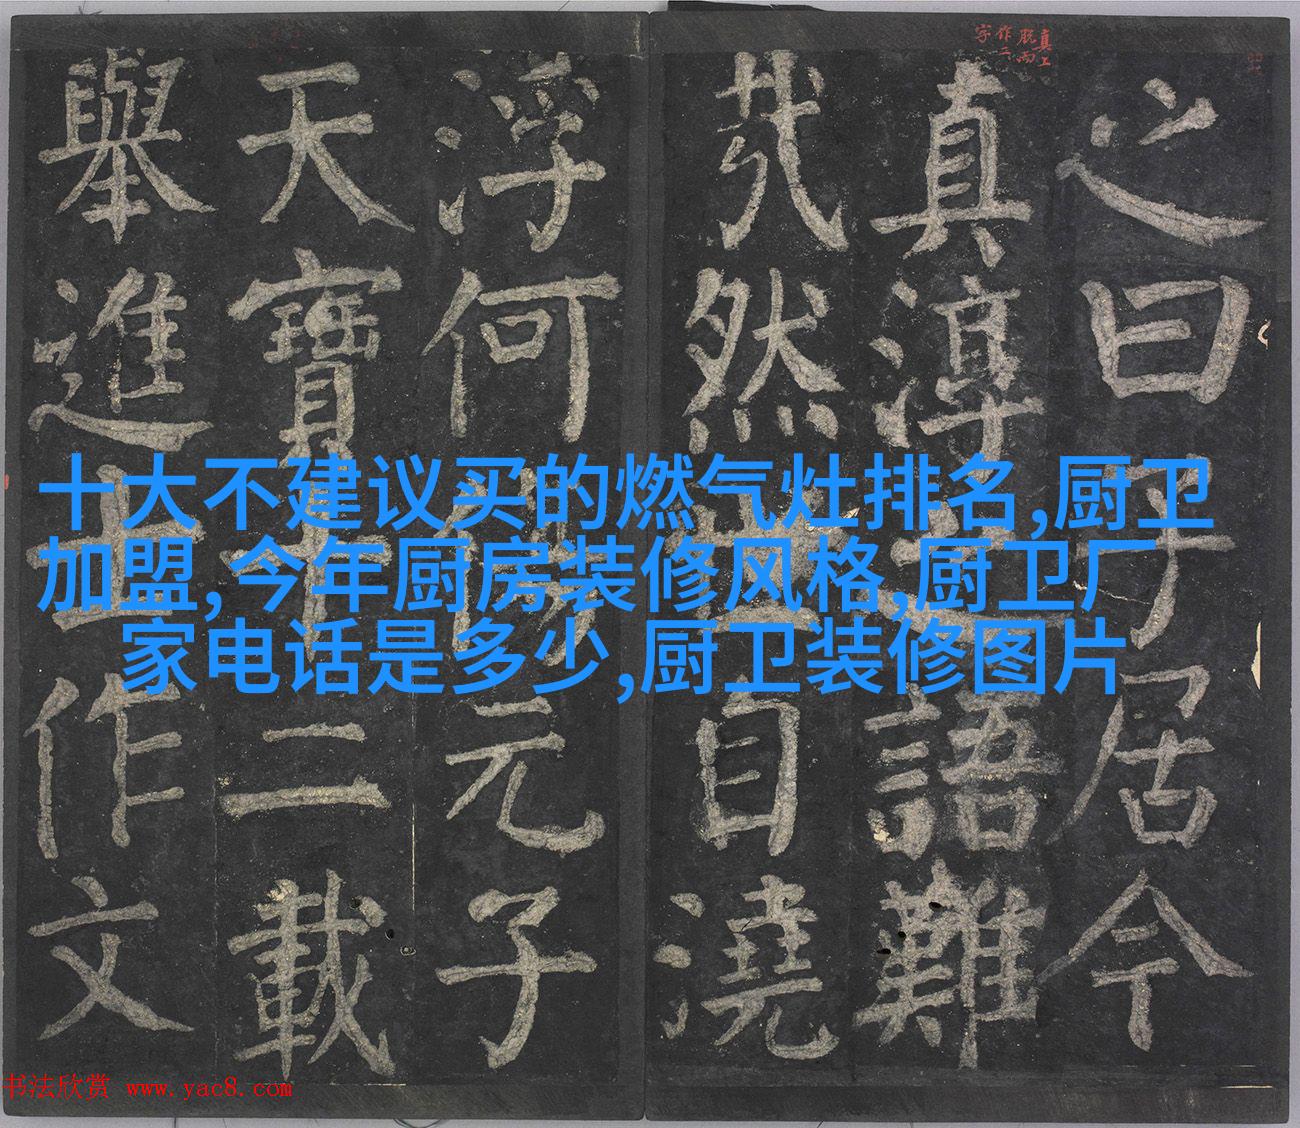 之曰□子居今
真淳之語難
㢤然世自澆
浮何傷元子
天寶十二載
舉進士作文
真上
脱而
作二
字
十大不建议买的燃气灶排名,厨卫
加盟,今年厨房装修风格,厨卫厂
家电话是多少,厨卫装修图片
书法欣赏 www.yac8.com